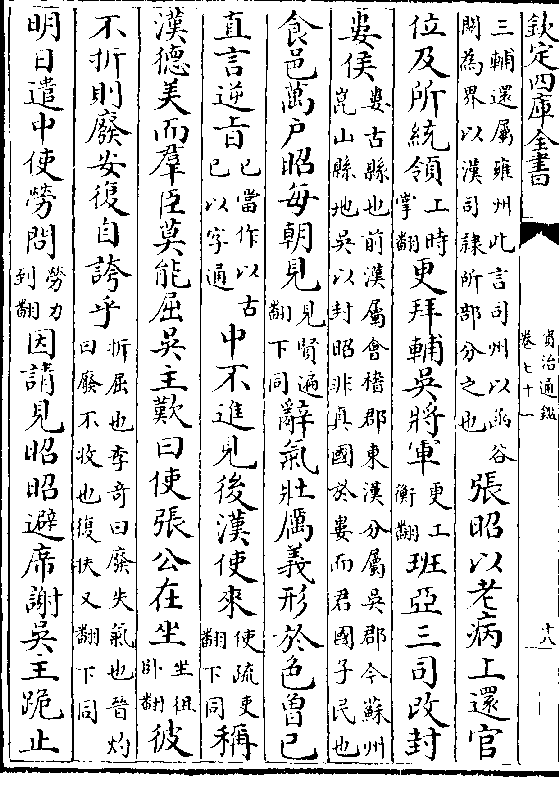 欽定四庫全書
資治通鑑
卷七十一
十八
三輔還屬雍州此言司州以函谷
關為界以漢司隸所部分之也
張昭以老病上還官
位及所統領
上時
掌翻
更拜輔吳將軍
更工
衡翻
班亞三司改封
婁侯
婁古縣也前漢屬會稽郡東漢分屬吳郡今蘇州
崑山縣地吳以封昭非真國於婁而君國子民也
食邑萬户昭每朝見
見賢遍
翻下同
辭氣壯厲義形於色曾已
直言逆旨
已當作以古
已以字通
中不進見後漢使來
使疏吏
翻下同
稱
漢德美而羣臣莫能屈吳主歎曰使張公在坐
坐徂
卧翻
彼
不折則廢安復自誇乎
折屈也李奇曰廢失氣也晉灼
曰廢不收也復扶又翻下同
明日遣中使勞問
勞力
到翻
因請見昭昭避席謝吳王跪止